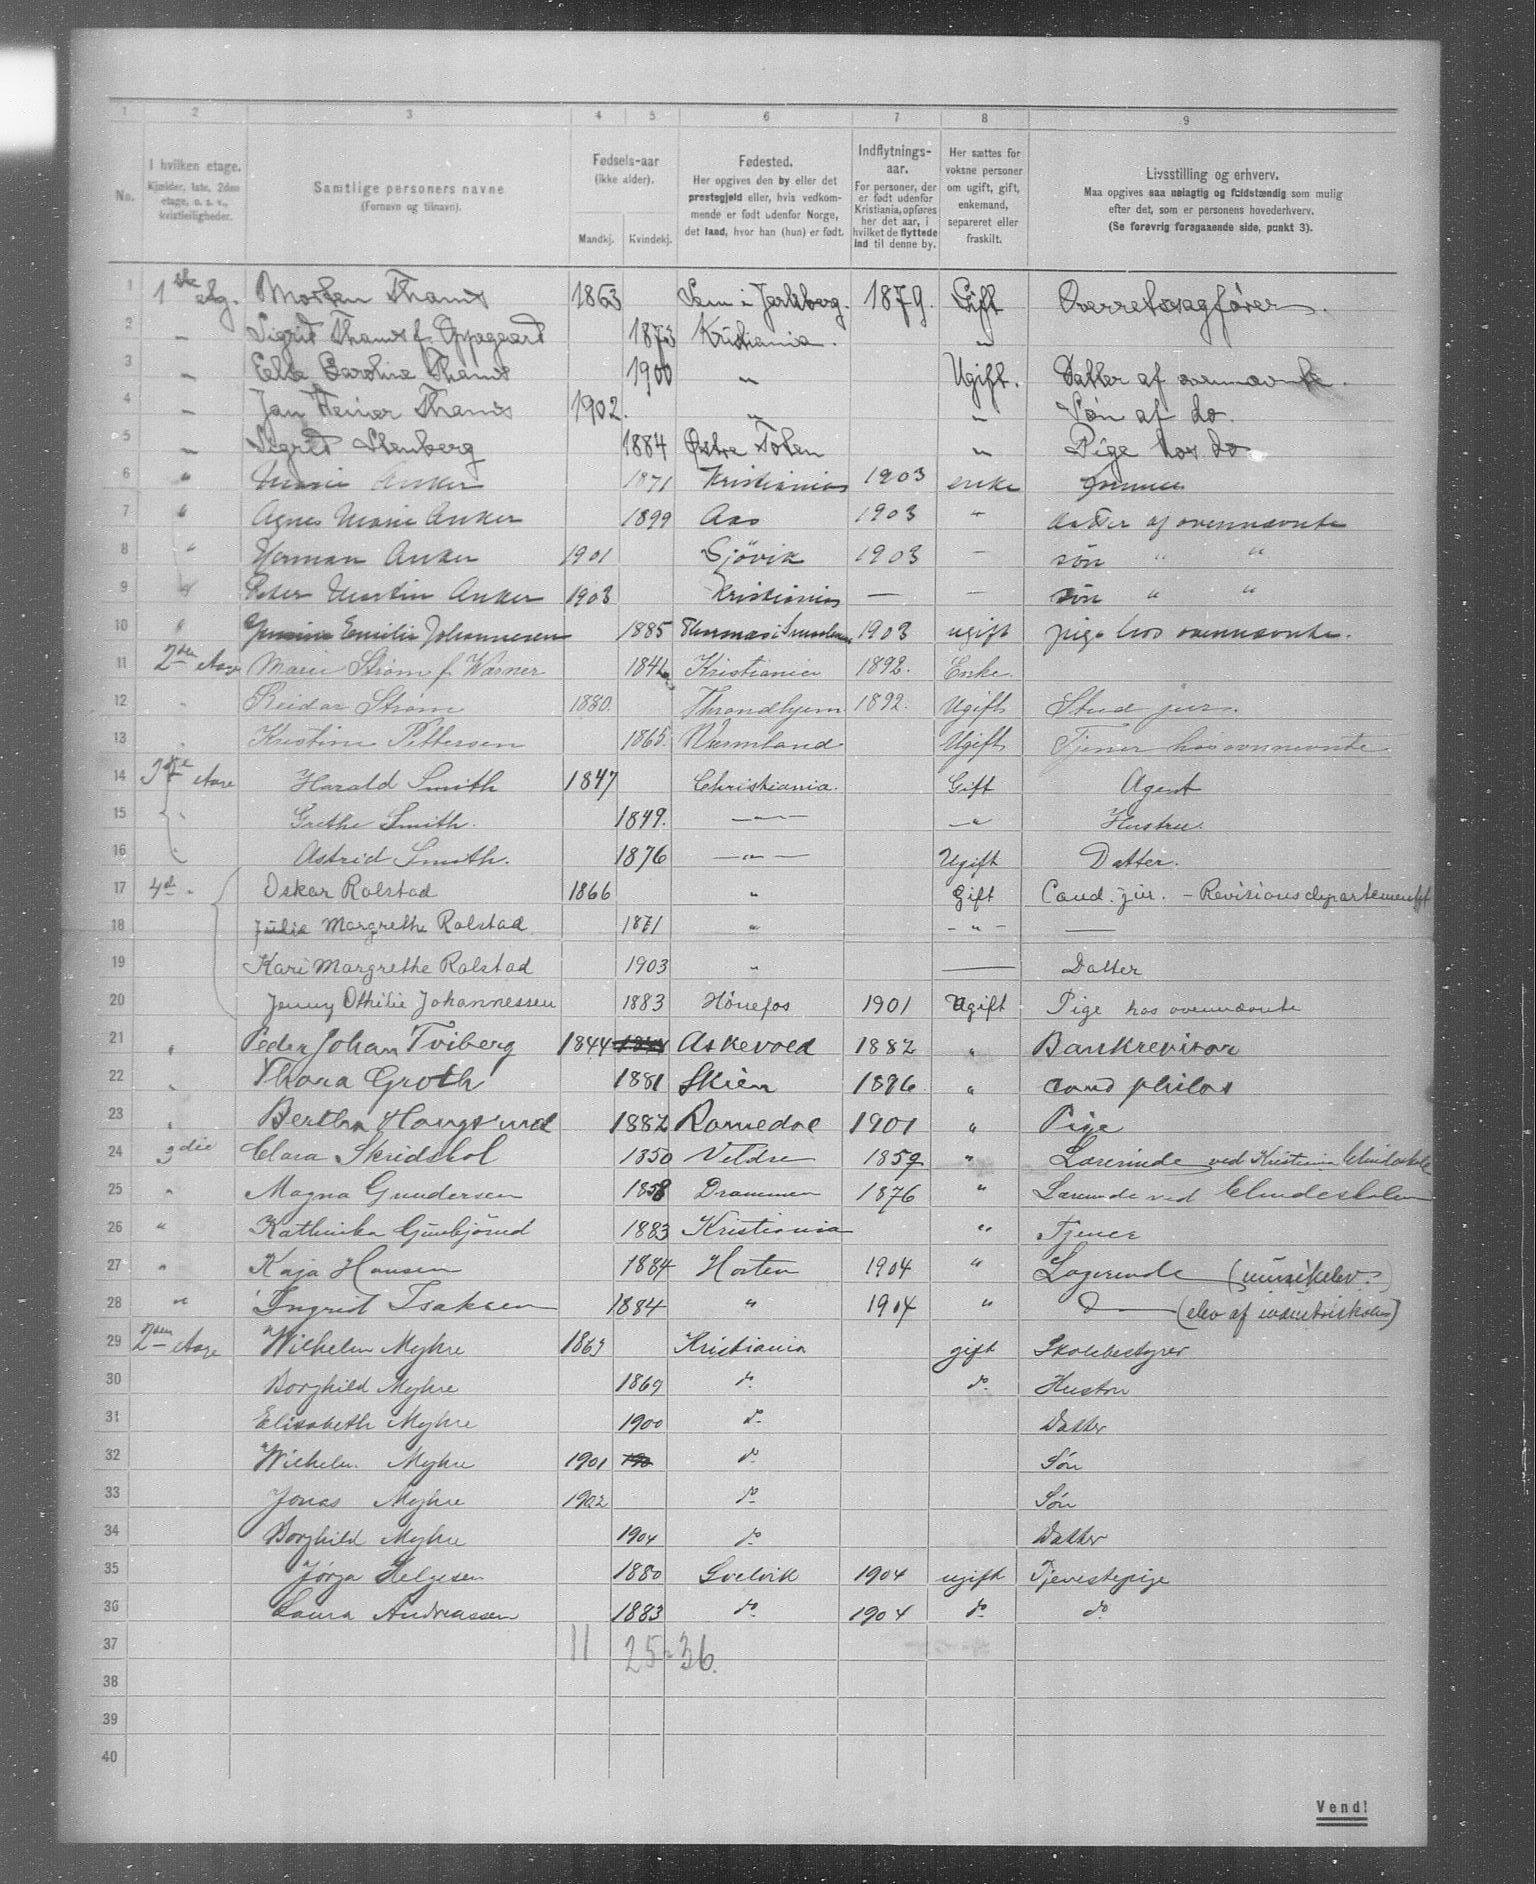 1 2 3 4 5 6 7 8 9
No. I hvilken etage. Kjælder, 1ste, 2den etage, o. s. v., kvistleiligheder. Samtlige personers navne (Fornavn og tilnavn). Fødsels-aar (ikke alder). Mandkj. Kvindekj. Fødested. Her opgives den by eller det prestegjeld eller, hvis vedkommende er født udenfor Norge, det land, hvor han (hun) er født. Indflytnings-aar. For personer, der er født udenfor Kristiania, opføres her det aar, i hvilket de flyttede ind til denne by. Her sættes for voksne personer om ugift, gift, enkemand, separeret eller fraskilt. Livsstilling og erhverv. Maa opgives saa nøiagtig og fuldstændig som mulig efter det, som er personens hovederhverv. (Se forøvrig foregaaende side, punkt 3).
1 1ste etg. Morten Thams 1863 Sem i Jarlsberg. 1879. Gift Overretssagfører.
2 " Sigrid Thams f. Oppegaard 1873 Kristiania. "
3 " Else Caroline Thams 1900 " Ugift. Datter af ovennævnte.
4 " Jan Heiner Thams 1902. " " Søn af do.
5 " Sigrid Stenberg 1884 Østre Toten " Pige hos do
6 " Marie Anker 1871 Kristiania 1903 enke
7 " Agnes Marie Anker 1899 Aas 1903 " datter af ovennævnte
8 " Herman Anker 1901 Gjövik 1903 - søn " "
9 " Peter Martin Anker 1903 Kristiania — - søn " "
10 " Emilie Johannesen 1885 1903 ugift pige hos ovennævnte.
11 2den Etage Marie Strøm f. Warner 1842 Kristiania 1892. Enke.
12 " Reidar Strøm 1880. Throndhjem 1892. Ugift Stud jur.
13 " Kristine Pettersen 1865. Wermland Ugift Tjener hos ovennevnte
14 3die Etage Harald Smith 1847 Christiania. Gift Agent
15 " Grethe Smith. 1849. —"— —" Hustru.
16 " Astrid Smith. 1876 —"— Ugift Datter.
17 4de " Oskar Rolstad 1866 " Gift Cand. jur. - Revisionsdepartementet
18 Julie Margrethe Rolstad 1871 " - " - —
19 Kari Margrethe Rolstad 1903 " — Datter
20 Jenny Othilie Johannessen 1883 Hønefos 1901 Ugift Pige hos ovennævnte
21 " Peder Johan Tviberg 1844 Askevold 1882 " Bankrevisor
22 " Thora Groth 1881 Skien 1896 " cand philos
23 " Bertha Haugsund 1882 Romedal 1901 " Pige
24 3die Clara Skridshol 1850 Veldre 1859 " Lærerinde ved Kristiania
25 " Magna Gundersen 1858 Drammen 1876 " Lærerinde ved
26 " Kathinka Gunbjørud 1883 Kristiania " Tjener
27 " Kaja Hansen 1884 Horten 1904 " Logerende (musikelev.)
28 " Ingrid Isaksen 1884 " 1904 " do (elev af industriskolen)
29 2den Etage Wilhelm Myhre 1863 Kristiania gift Skolebestyrer
30 Borghild Myhre 1869 do. do. Hustru
31 Elisabeth Myhre 1900 do. Datter
32 Wilhelm Myhre 1901 do. Søn
33 Jonas Myhre 1902 do. Søn
34 Borghild Myhre 1904 do. Datter
35 Jørga Helgesen 1880 Svelvik 1904 ugift Tjenestepige
36 Laura Andreassen 1883 do. 1904 do. do.
37 11 25 = 36.
38
39
40
Vend!